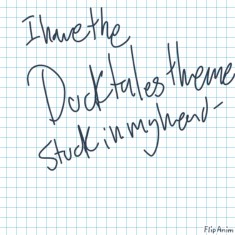 I have the
Ducktales theme
stuck in my head-
FlipAnim